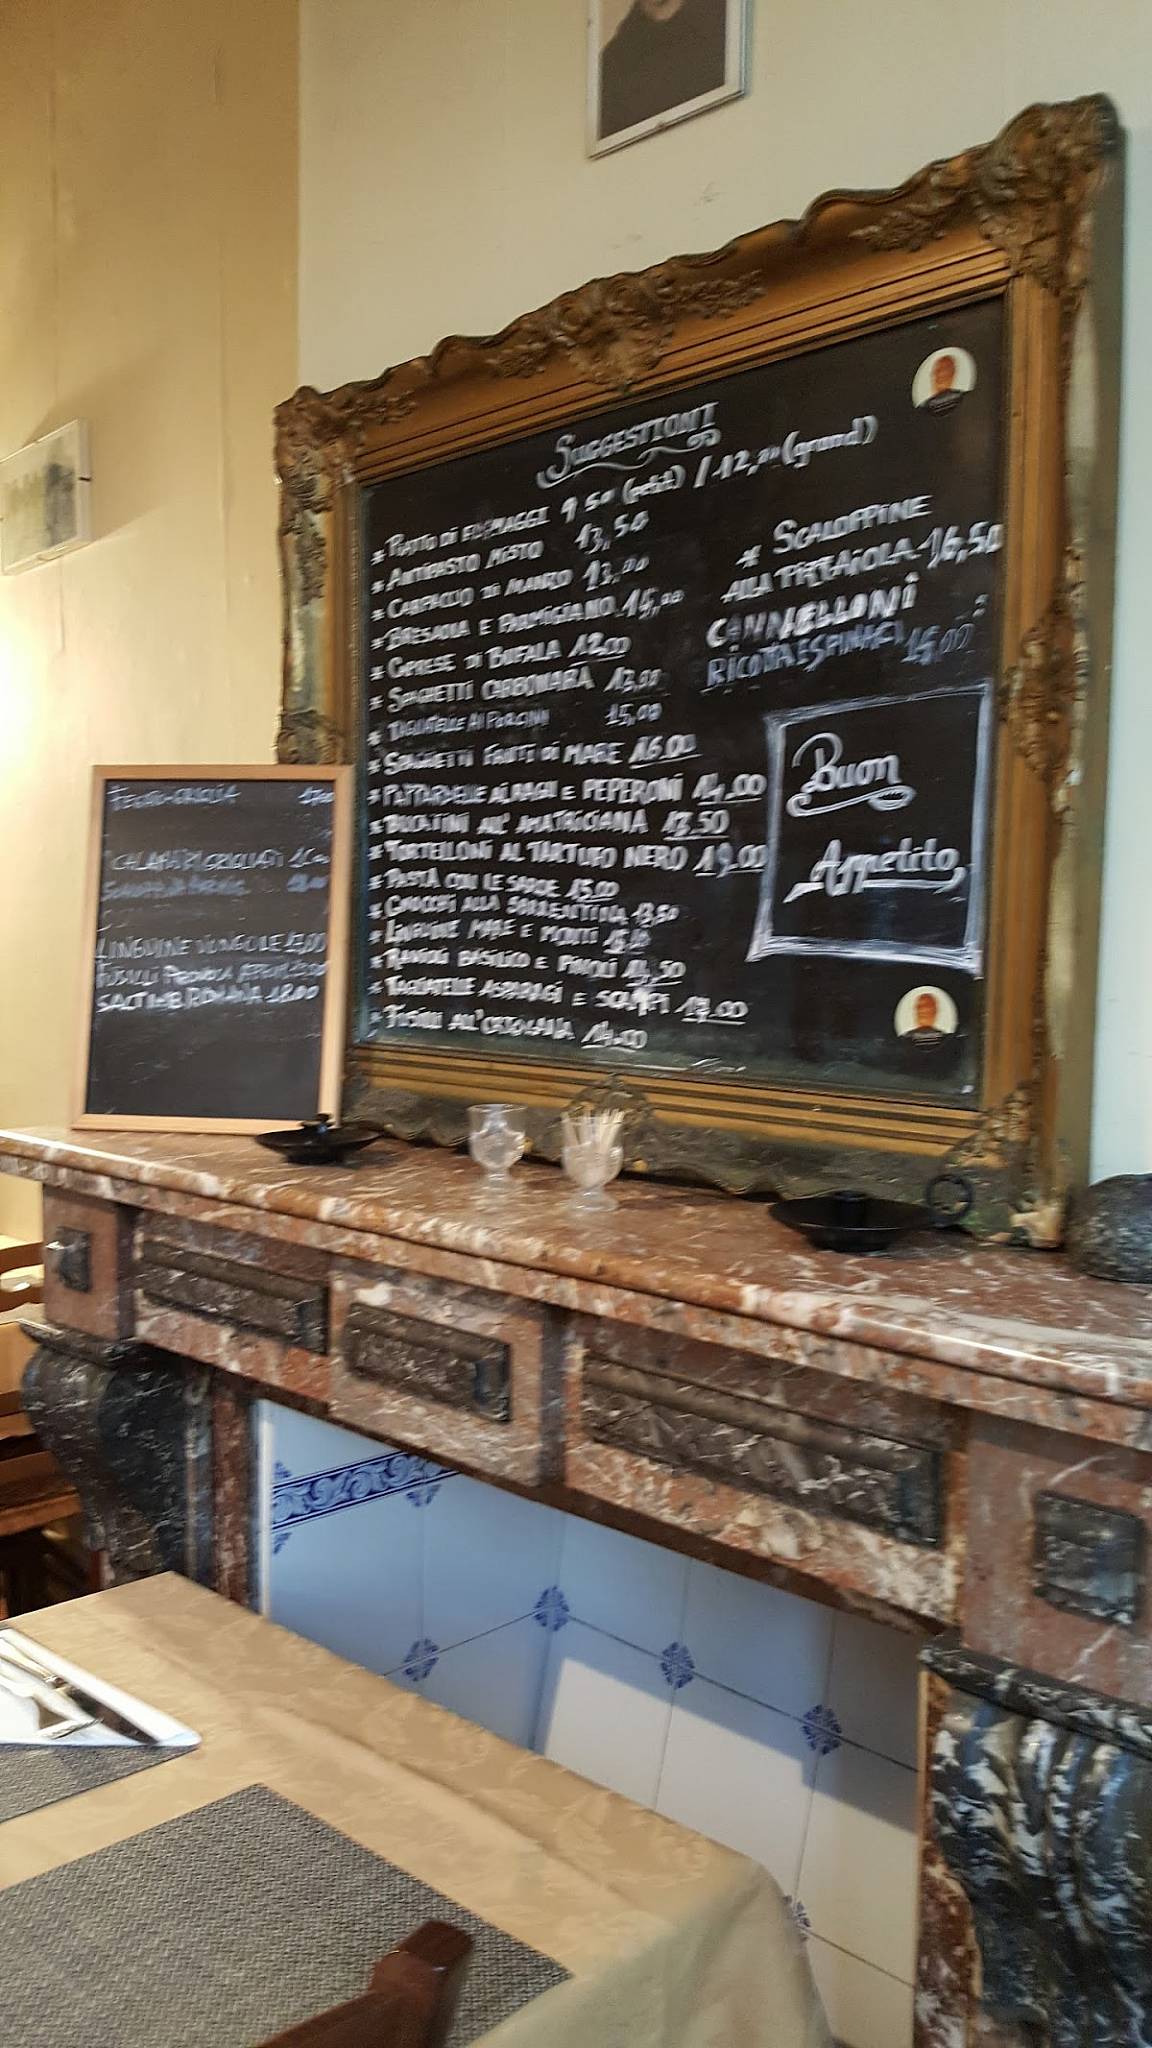 SUGGESTIONI
* PIATTO DI FORMAGGI 9,50 (petit) / 12,00 (grand)
* ANTIPASTO MISTO 13,50
* CARPACCIO DI MANZO 13,00
* BRESAOLA E PARMIGIANO 15,00
* CAPRESE DI BUFALA 12,00
* SPAGHETTI CARBONARA 13,00
* TAGLIATELLE AI PORCINI 15,00
* SPAGHETTI FRUTTI DI MARE 16.00
* PAPPARDELLE AL RAGU E PEPERONI 14,00
* BUCATINI ALL' AMATRICIANA 13.50
* TORTELLONI AL TARTUFO NERO 19,00
* PASTA CON LE SARDE 15.00
* GNOCCHI ALLA SORRENTINA 13,50
* LINGUINE MARE E MONTI
* RAVIOLI BASILICO E PINOLI 14,50
* TAGLIATELLE ASPARAGI E SCAMPI 17,00
* FUSILLI ALL'ORTOLANA 14.00
* SCALOPPINE
ALLA PIZZAIOLA 16,50
CANNELLONI
RICOTTA E SPINACI 15,00
Buon
Appetito
CALAMARI GRIGLIATI
LINGUINE VONGOLE 17,00
FUSILLI
SALTIMB. ROMANA 18.00